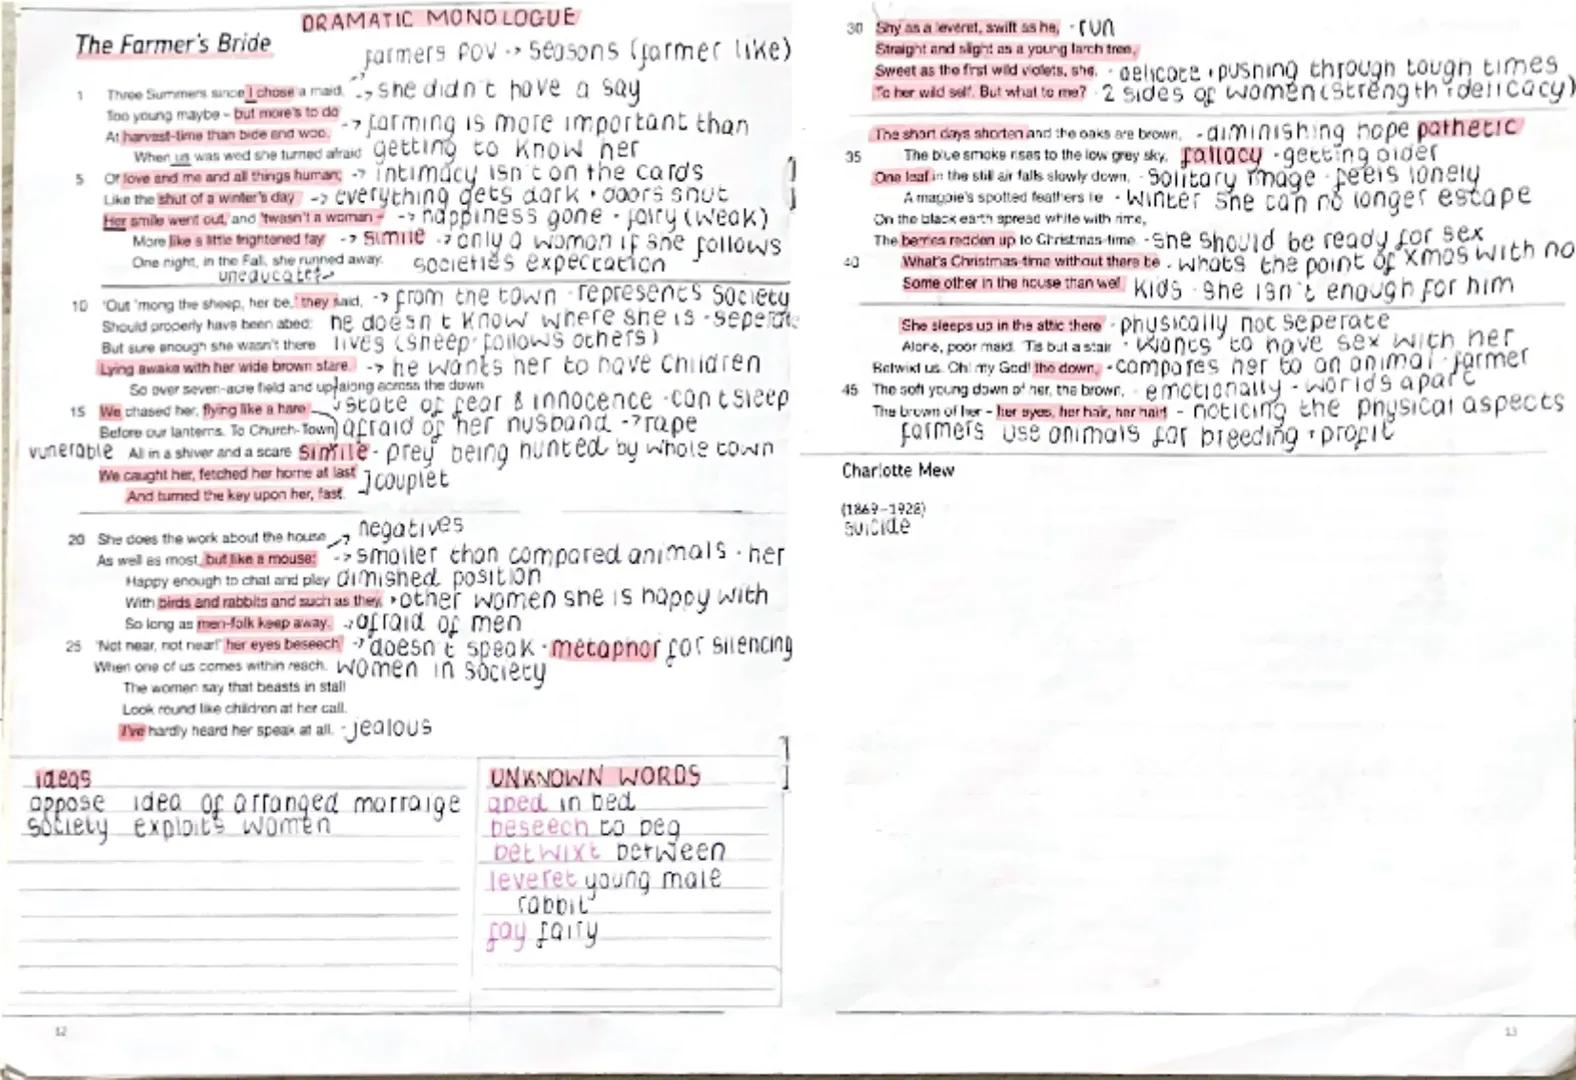 DRAMATIC MONOLOGUE
The Farmer's Bride
farmers POV -> seasons (farmer like)
1 Three Summers since I chose a maid, -> she didn't have a say
Too young maybe - but more's to do
At harvest-time than bide and woo. -> farming is more important than
When us was wed she turned afraid getting to know her
5 Of love and me and all things human; -> intimacy isn't on the cards
Like the shut of a winter's day -> everything gets dark + doors shut
Her smile went out, and 'twasn't a woman - -> happiness gone - fairy (weak)
More like a little frightened fay -> simile -> only a woman if she follows
One night, in the Fall, she runned away. societies expectation
uneducated
10 'Out 'mong the sheep, her be,' they said, -> from the town - represents society
Should properly have been abed; he doesn't know where she is - seperate
But sure enough she wasn't there lives (sheep - follows others)
Lying awake with her wide brown stare. -> he wants her to have children
So over seven-acre field and up-along across the down
15 We chased her, flying like a hare -> state of fear & innocence - can't sleep
Before our lanterns. To Church-Town afraid of her husband -> rape
vunerable All in a shiver and a scare simile - prey being hunted by whole town
We caught her, fetched her home at last ] couplet
And turned the key upon her, fast.
negatives
20 She does the work about the house
As well as most, but like a mouse: -> smaller than compared animals - her
Happy enough to chat and play dimished position
With birds and rabbits and such as they, other women she is happy with
So long as men-folk keep away. -> afraid of men
25 'Not near, not near!' her eyes beseech -> doesn't speak - metaphor for silencing
When one of us comes within reach. women in society
The women say that beasts in stall
Look round like children at her call.
I've hardly heard her speak at all. - jealous
ideas
oppose idea of arranged marraige
society exploits women
UNKNOWN WORDS
abed in bed
beseech to beg
betwixt between
leveret young male
rabbit
fay fairy
12
30 Shy as a leveret, swift as he, - run
Straight and slight as a young larch tree,
Sweet as the first wild violets, she, - delicate + pushing through tough times
To her wild self. But what to me? - 2 sides of women (strength + delicacy)
The short days shorten and the oaks are brown, - diminishing hope pathetic
35 The blue smoke rises to the low grey sky, fallacy - getting older
One leaf in the still air falls slowly down, - solitary image - feels lonely
A magpie's spotted feathers lie - winter she can no longer escape
On the black earth spread white with rime,
The berries redden up to Christmas-time. - she should be ready for sex
40 What's Christmas-time without there be - whats the point of xmas with no
Some other in the house than we! kids - she isn't enough for him
She sleeps up in the attic there - physically not seperate
Alone, poor maid. 'Tis but a stair - wants to have sex with her
Betwixt us. Oh! my God! the down, - compares her to an animal - farmer
45 The soft young down of her, the brown, - emotionally - worlds apart
The brown of her - her eyes, her hair, her hair! - noticing the physical aspects
farmers use animals for breeding + profit
Charlotte Mew
(1869-1928)
suicide
13